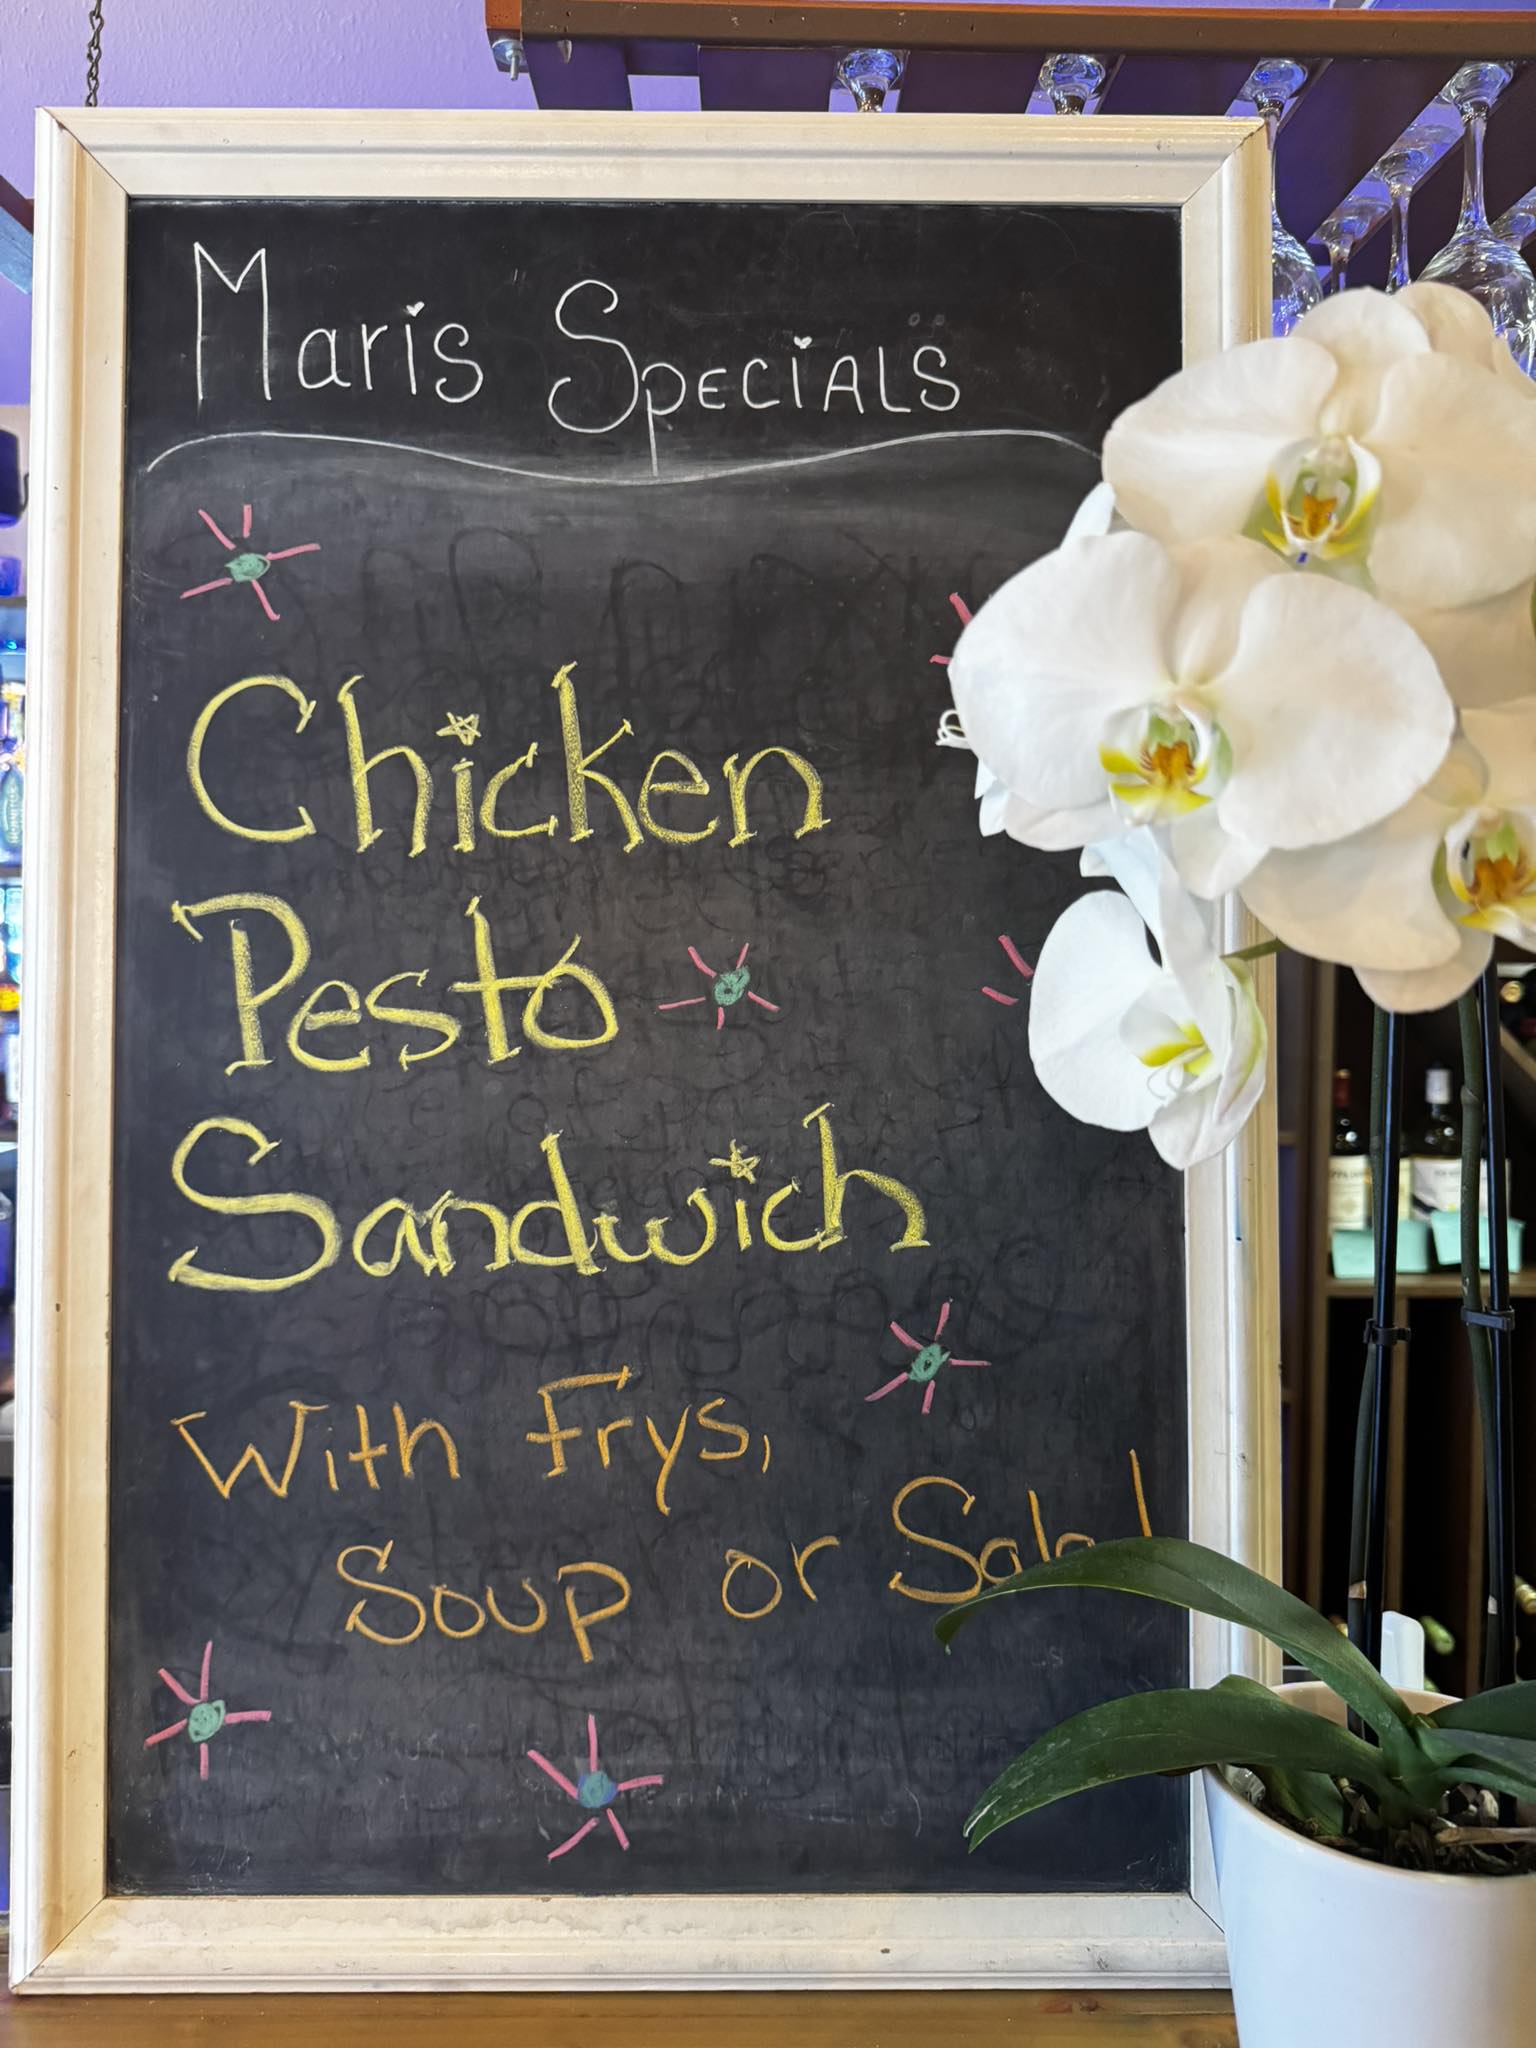 Maris Specials
Chicken
Pesto
Sandwich
With Frys,
Soup or Salad